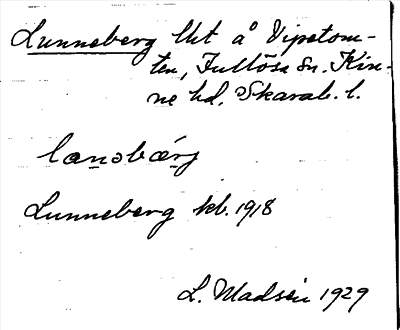 Lunneberg lht å Vipetom-
ten, Fullösa sn. Kin-
ne hd. Skarab. l.
Lunneberg kb. 1918
L. Madsén 1929